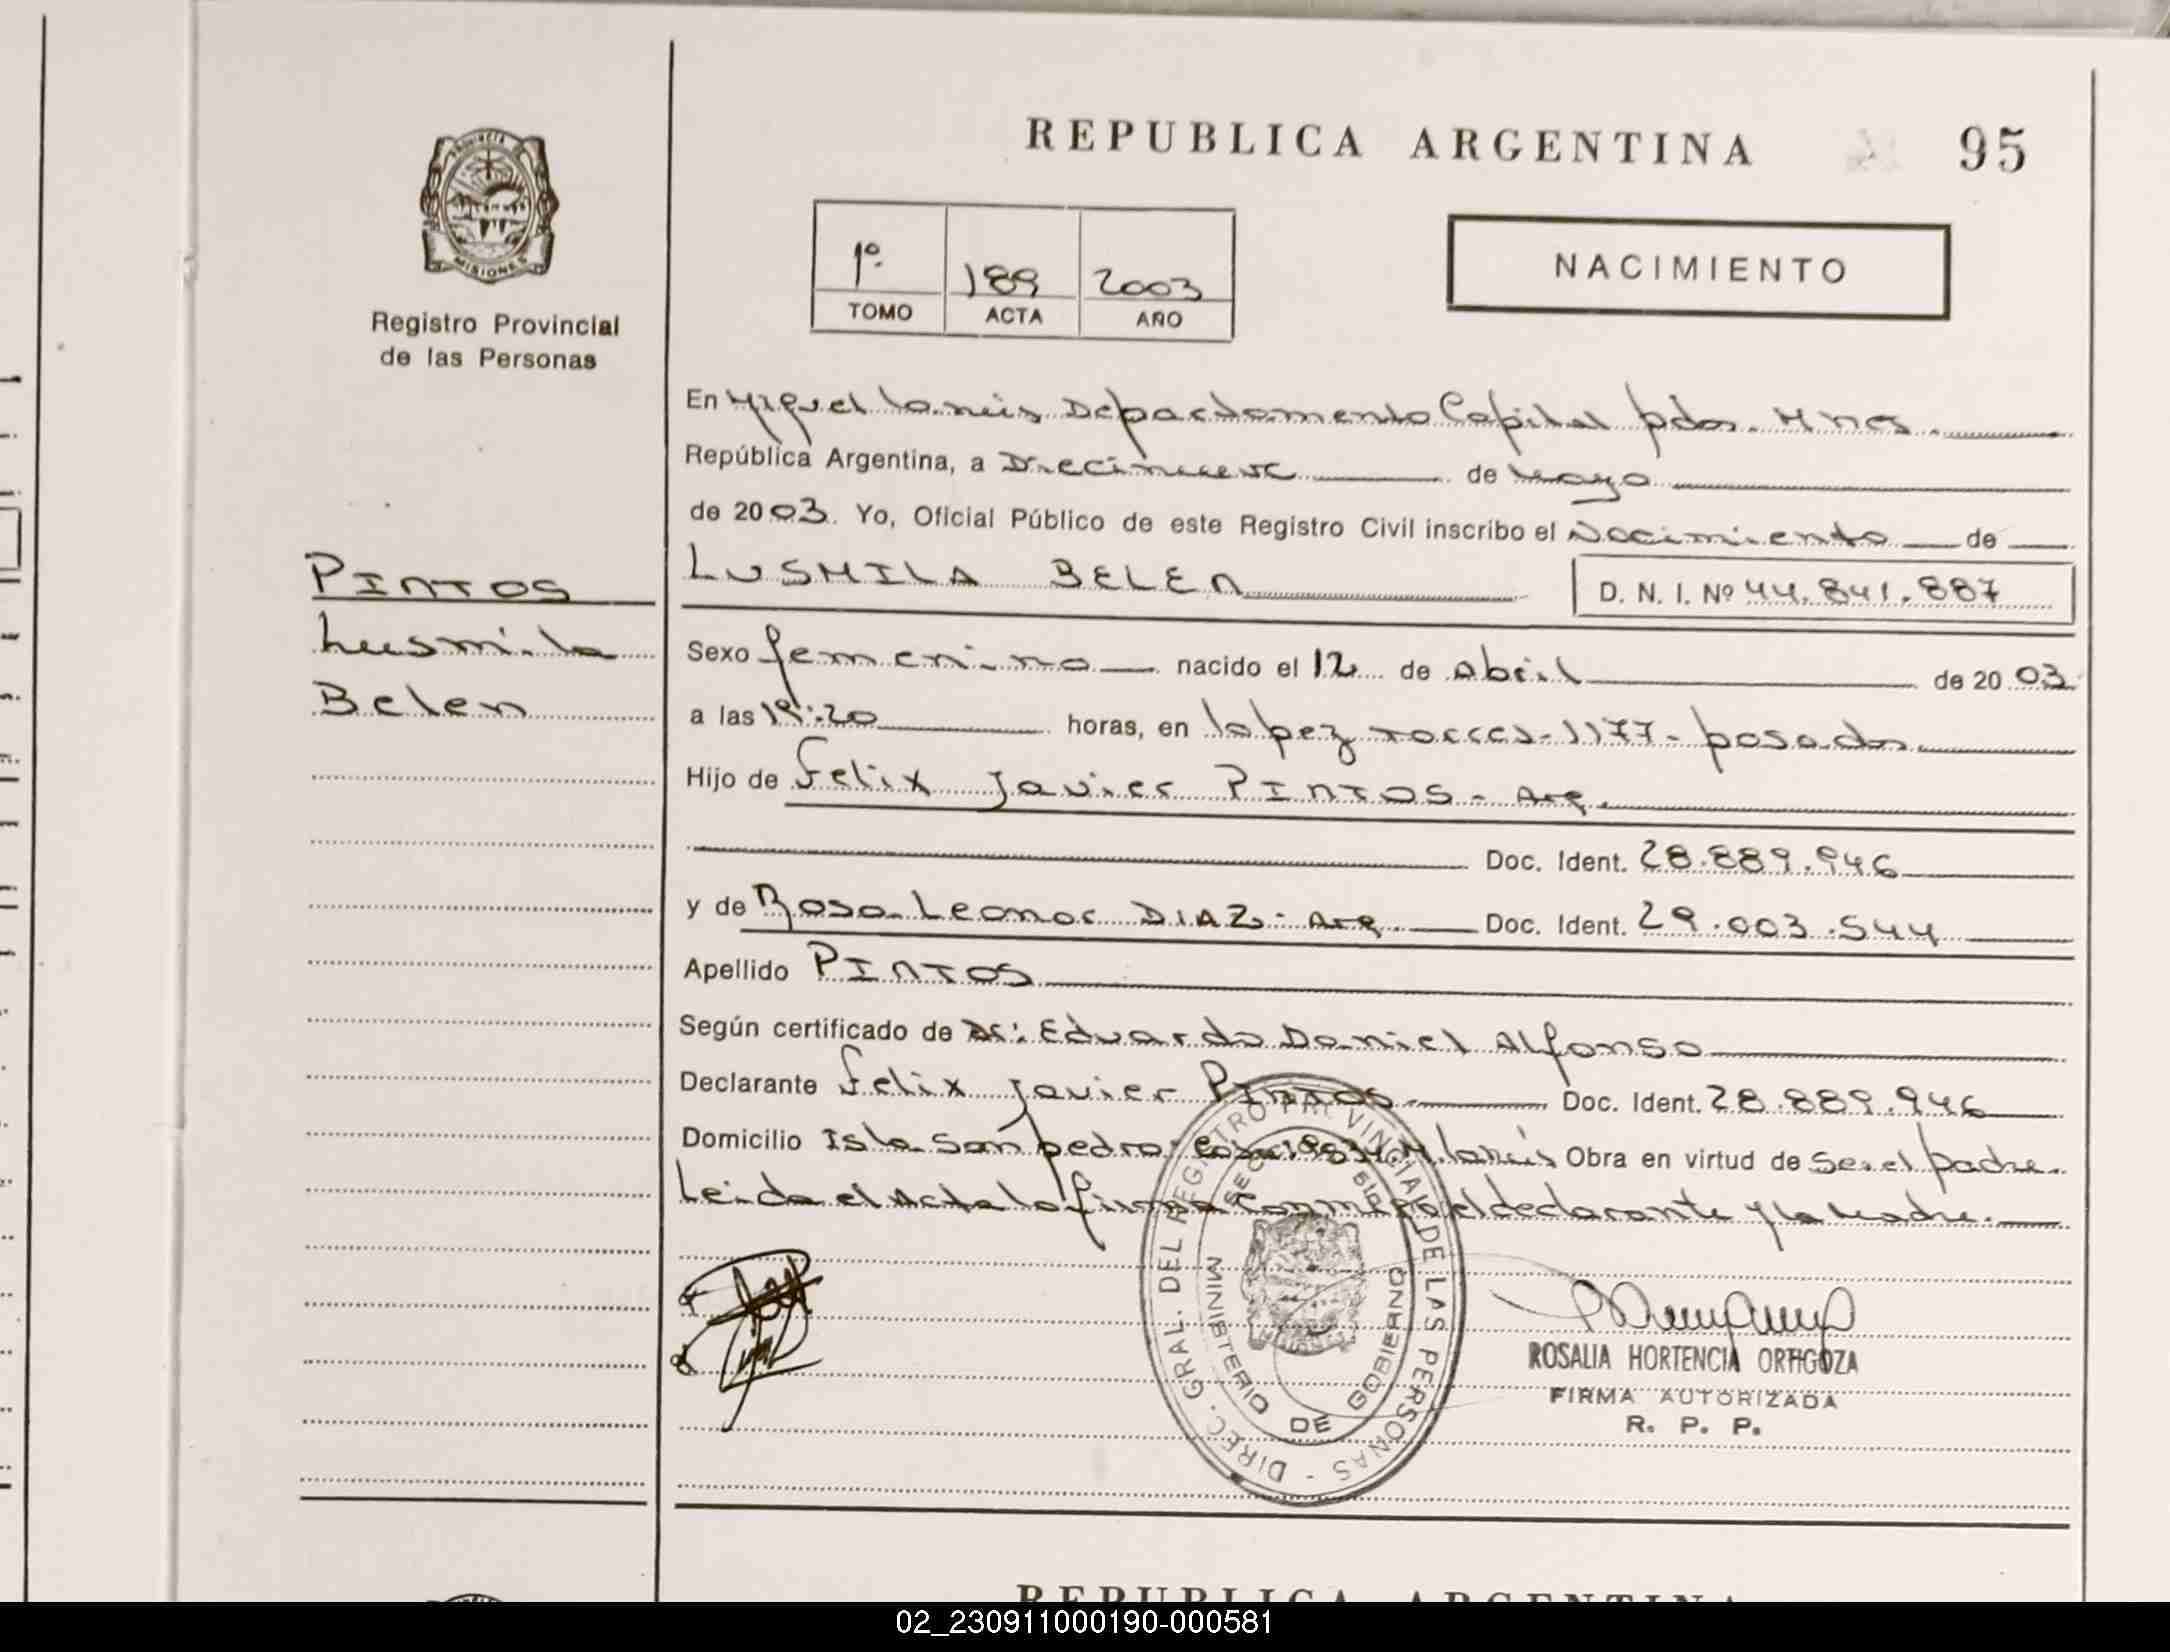 PROVINCIA DE
MISIONES
Registro Provincial
de las Personas
REPUBLICA ARGENTINA 95
1º 189 2003
TOMO ACTA AÑO
NACIMIENTO
PINTOS
Lusmila
Belen
En Miguel Lanús Departamento Capital pdas. Mnes.
República Argentina, a Diecinueve de Mayo
de 2003. Yo, Oficial Público de este Registro Civil inscribo el Nacimiento de
LUSMILA BELEN D. N. I. Nº 44.841.887
Sexo femenino nacido el 12 de Abril de 2003
a las 19:20 horas, en Lopez Torres-1177-posadas
Hijo de Felix Javier PINTOS - Arg.
Doc. Ident. 28.889.946
y de Rosa Leonor DIAZ - Arg. Doc. Ident. 29.003.544
Apellido PINTOS
Según certificado de Dr: Eduardo Daniel Alfonso
Declarante Felix Javier PINTOS Doc. Ident. 28.889.946
Domicilio Isla San pedro M. Lanús Obra en virtud de ser el padre.
Leida el Acta la firma conmigo el declarante y la Madre.
DIREC. GRAL. DEL REGISTRO PROVINCIAL DE LAS PERSONAS -
MINISTERIO DE GOBIERNO
ROSALIA HORTENCIA ORTIGOZA
FIRMA AUTORIZADA
R. P. P.
REPUBLICA ARGENTINA
02_230911000190-000581